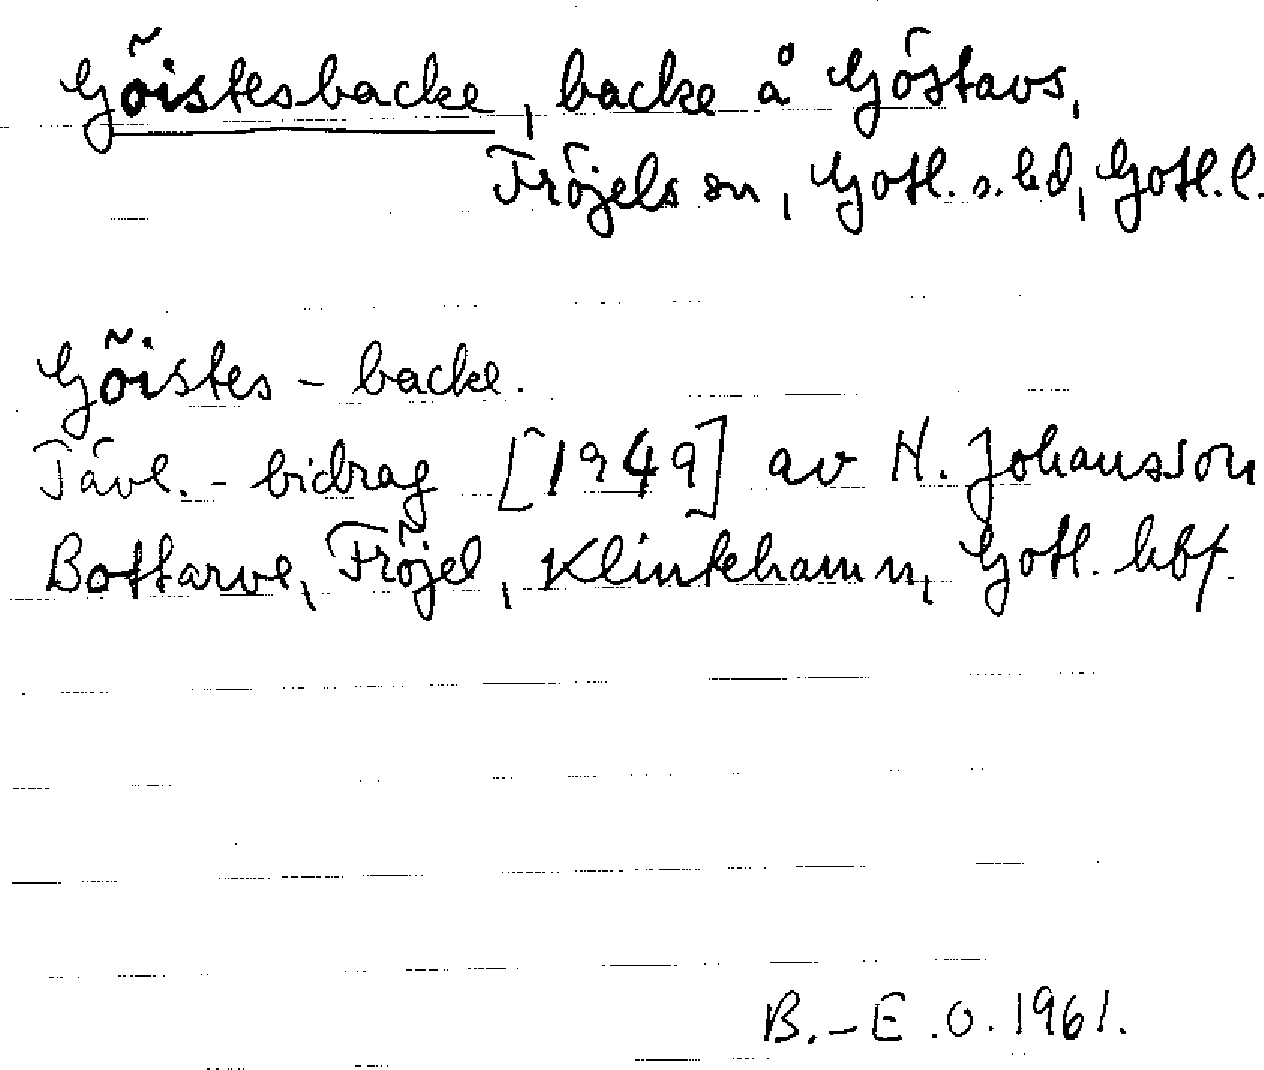 Göistesbacke, backe å Göstavs,
Fröjels sn, Gotl. s. hd, Gotl. l.
Göistes - backe.
Tävl. - bidrag [1949] av H. Johansson
Bottarve, Fröjel, Klintehamn, Gotl. hbf.
B.-E.O. 1961.